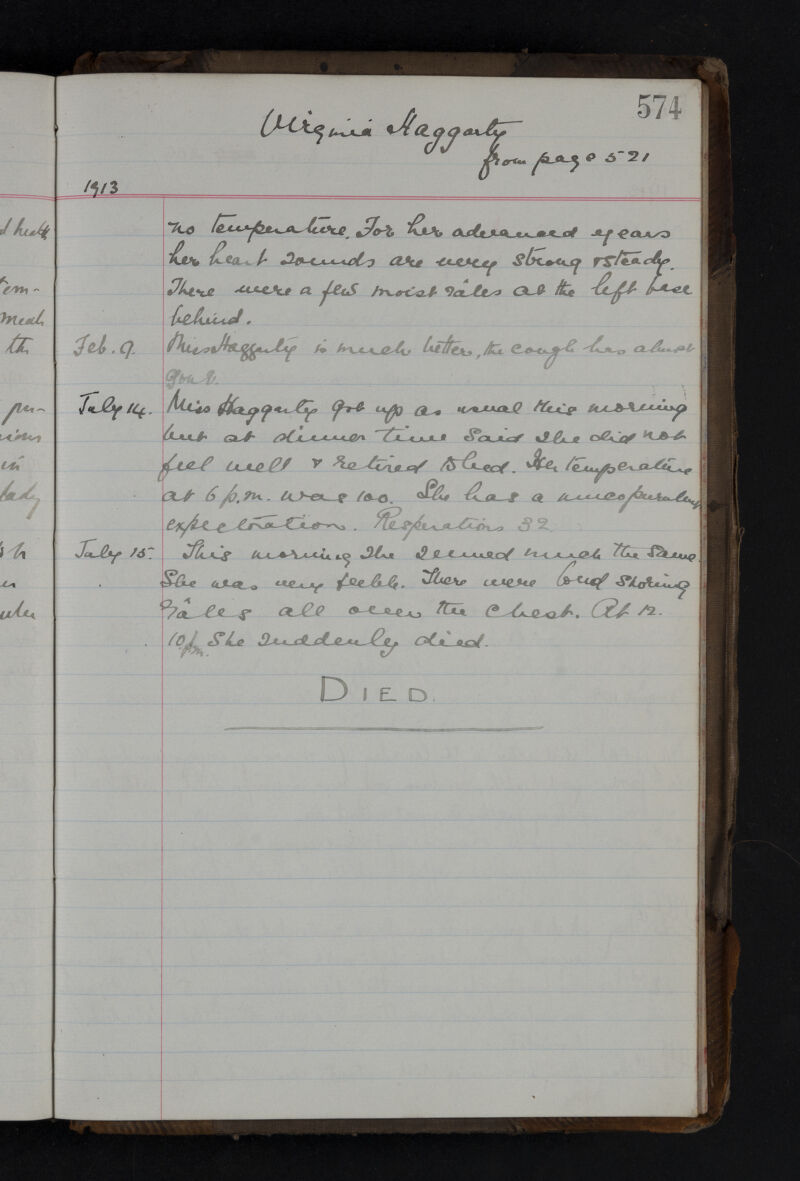 574
Virginia Haggarty
from page 521
1913
no temperature. For her advanced years
her heart sounds are very strong & steady.
There were a few moist râles at the left base
behind.
Feb. 9. Miss Haggarty is much better, the cough has almost
gone.
July 14. Miss Haggarty got up as usual this morning
but at dinner time said she did not
feel well & retired to bed. Her temperature
at 6 p.m. was 100. She has a mucopurulent
expectoration. Respirations 32
July 15. This morning she seemed much the same.
She was very feeble. There were loud snoring
râles all over the chest. At 12.
10 p.m. she suddenly died.
DIED.
d health
tem-
the
in
lady